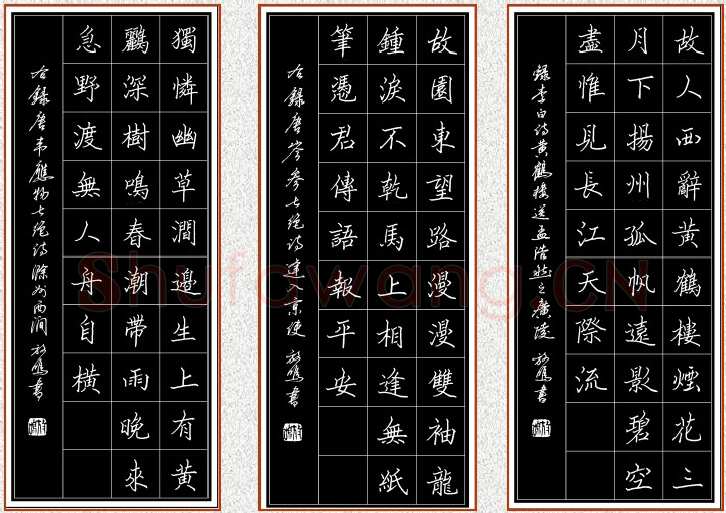 故人西辭黃鶴樓煙花三
月下揚州孤帆遠影碧空
盡惟見長江天際流
錄李白詩黃鶴樓送孟浩然之廣陵 書
故園東望路漫漫雙袖龍
鍾淚不乾馬上相逢無紙
筆憑君傳語報平安
右錄唐岑參七絕詩逢入京使 書
獨憐幽草澗邊生上有黃
鸝深樹鳴春潮帶雨晚來
急野渡無人舟自橫
右錄唐韋應物七絕詩滁州西澗 書
Shufawang.CN